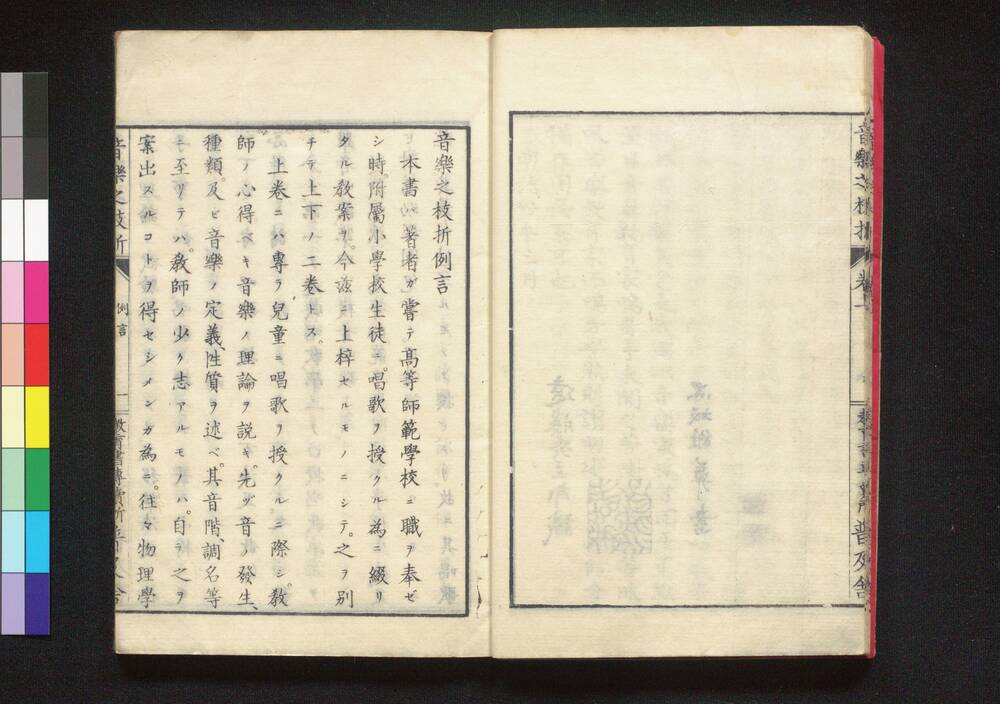 音樂之枝折
卷上
普及舍
音樂之枝折例言
本書ハ著者ガ嘗テ高等師範學校ニ職ヲ奉ゼ
シ時。附屬小學校生徒ニ。唱歌ヲ授クル為ニ綴リ
タル敎案ヲ。今茲ニ上梓セルモノニシテ。之ヲ別
チテ上下ノ二卷トス。
上卷ニハ專ラ兒童ニ唱歌ヲ授クルニ際シ。敎
師ノ心得ベキ音樂ノ理論ヲ說キ。先ヅ音ノ發生、
種類。及ビ音樂ノ定義、性質ヲ述ベ。其音階、調名等
ニ至リテハ。敎師ノ少ク志アルモノハ。自ラ之ヲ
案出スルコトヲ得セシメンガ為ニ。往々物理學
音樂之枝折
例言
一
敎育書專賣所普及舍